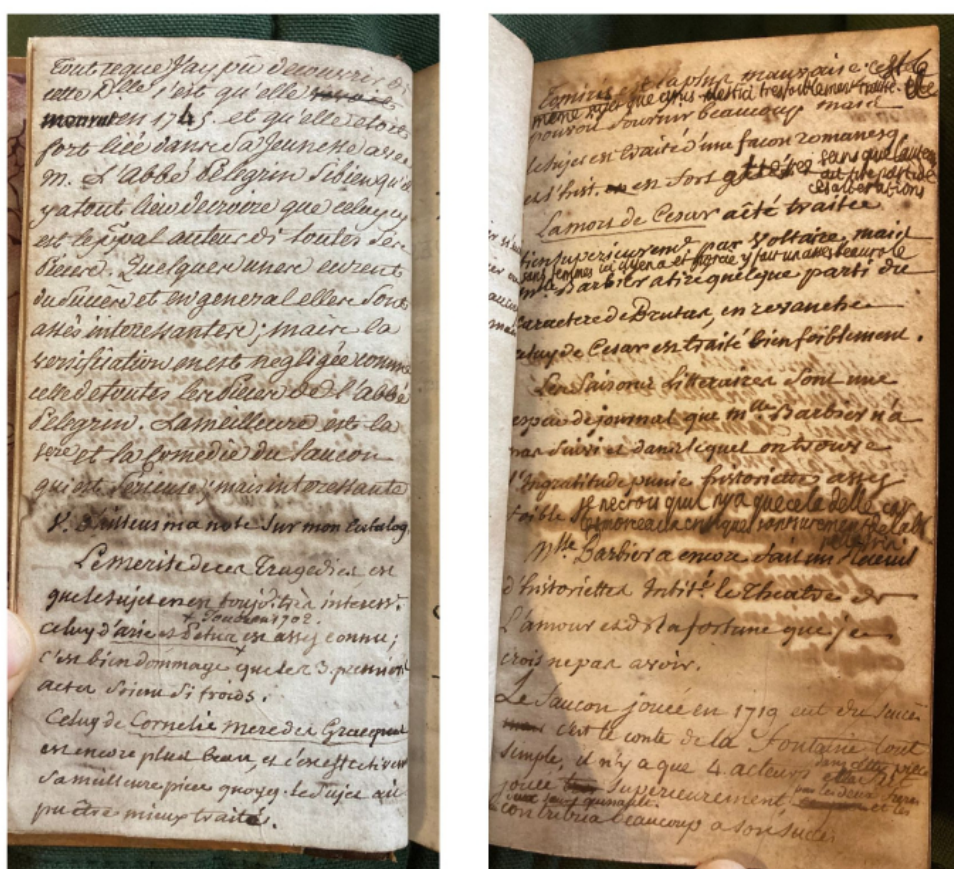 Tout ce que J'ay pû decouvrir de
cette D.elle c'est qu'elle
mourut en 1745. et qu'elle etoit
fort liée dans sa Jeunesse avec
M. L'abbé Pelegrin si bien qu'il
y a tout lieu de croire que celuy cy
est le p.pal auteur de toutes ses
Pieces. Quelques unes eurent
du Succès et en general elles sont
assés interessantes; mais la
versification en est negligée comme
celle de toutes les Pieces de l'abbé
Pelegrin. La meilleure est la
et la Comedie du faucon
qui est serieuse, mais interessante
V. dessus ma note sur mon Catalog.
Le merite de ces Tragedies est
que le sujet en est toujo.rs très interess.t
+ Jouée en 1702.
Celuy d'arie et Petus est assez connu;
c'est bien dommage que les 3. premiers
actes soient si froids.
Celuy de Cornelie mere des Gracques
est encore plus beau, et c'est effectivem.
sa meilleure piece quoyq. le Sujet ait
pu être mieux traité.
Tomiris est la plus mauvaise. c'est le
même sujet que Cyrus il est ici tres foiblement traité. Elle
pouvoit fournir beaucoup mais
le sujet est traité d'une façon romanesq
et l'hist. en est fort sans que l'auteur
ait pu profit de
ces alterations
La mort de Cesar a été traitée
bien superieurem.t par Voltaire, mais
sans femmes ici il y en a et Porcie y fait un assez beau role
M.lle Barbier a tiré quelque parti du
Caractere de Brutus, en revanche
celuy de Cesar est traité bien foiblement.
Les Saisons litteraires sont une
espece de journal que M.lle Barbier n'a
pas suivi et dans lequel on trouve
l'Ingratitude punie historiette assez
foible je ne crois qu'il n'y a que cela d'elle car
les morceaux critiques sont surement de l'abbé
pelegrin
M.lle Barbier a encore fait un Recueil
d'historiettes Intit.é le Theatre de
L'amour et de la fortune que je
crois ne pas avoir.
Le Faucon jouée en 1719 eut du succès
c'est le conte de la Fontaine tout
simple, il n'y a que 4. acteurs dans cette piece
jouée superieurement par les deux freres
quinault et
contribua beaucoup a son succès